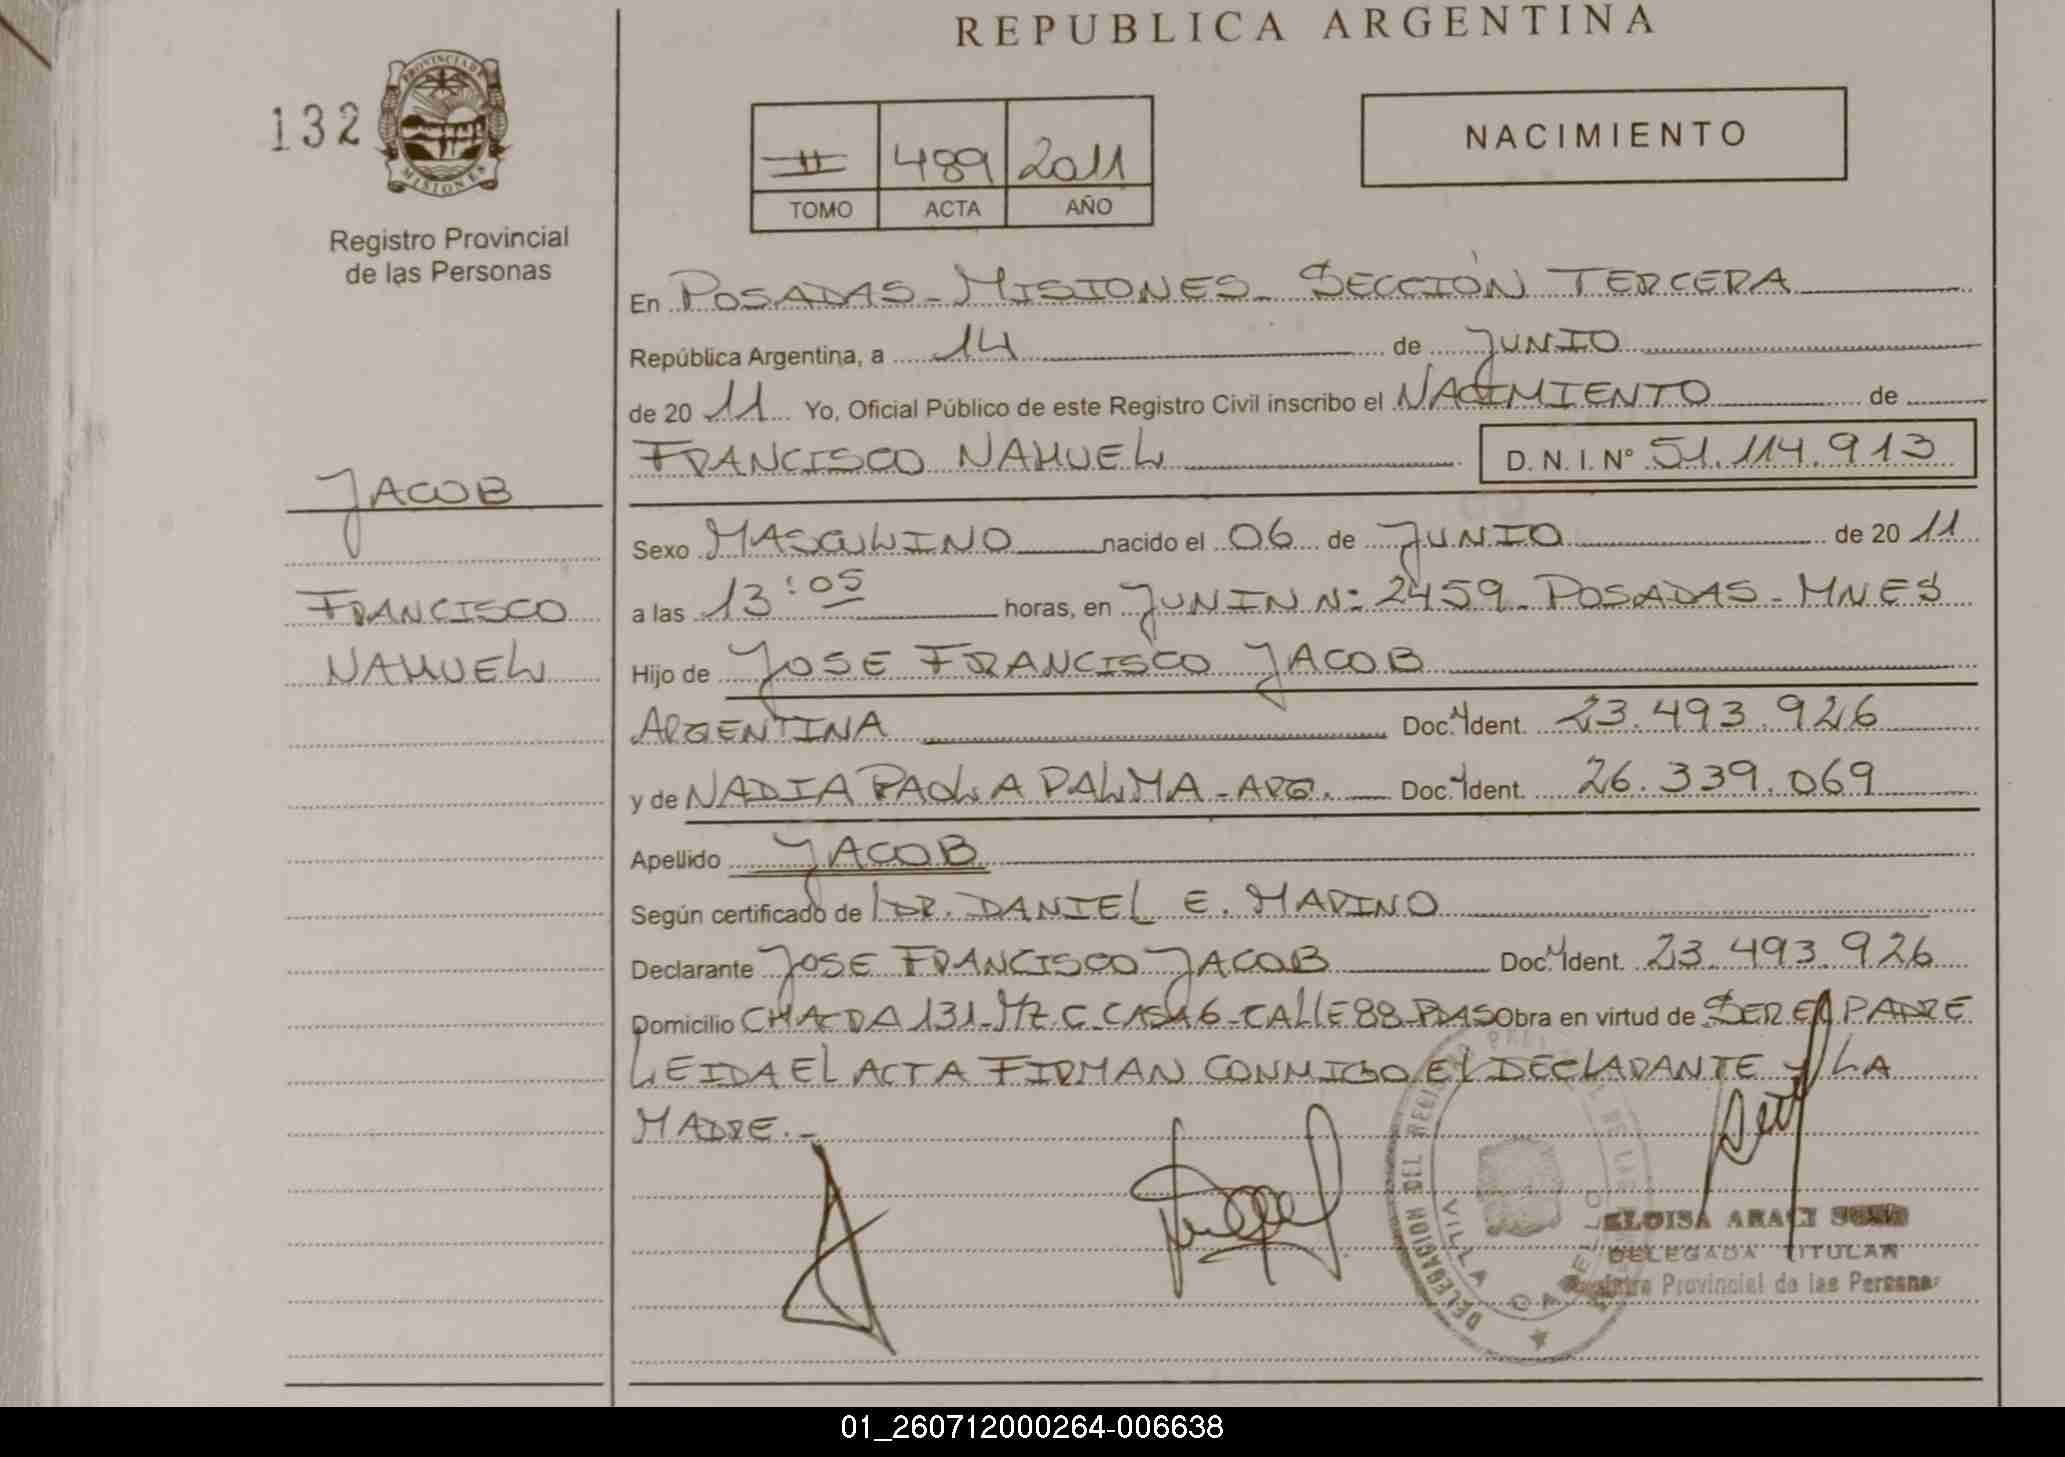 REPUBLICA ARGENTINA
132
PROVINCIA DE
MISIONES
Registro Provincial
de las Personas
II 489 2011
TOMO ACTA AÑO
NACIMIENTO
En POSADAS - MISIONES - SECCIÓN TERCERA
República Argentina, a 14 de JUNIO
de 2011 Yo, Oficial Público de este Registro Civil inscribo el NACIMIENTO de
FRANCISCO NAHUEL D. N. I. Nº 51.114.913
JACOB
FRANCISCO
NAHUEL
Sexo MASCULINO nacido el 06 de JUNIO de 2011
a las 13:05 horas, en JUNIN Nº 2459 - POSADAS - MNES
Hijo de JOSE FRANCISCO JACOB
ARGENTINA Doc. Ident. 23.493.926
y de NADIA PAOLA PALMA - ARG. Doc. Ident. 26.339.069
Apellido JACOB
Según certificado de DR. DANIEL E. MARINO
Declarante JOSE FRANCISCO JACOB Doc. Ident. 23.493.926
Domicilio CHACRA 131 - MZ. C - CASA 6 - CALLE 88 - PDAS Obra en virtud de SER EL PADRE
LEIDA EL ACTA FIRMAN CONMIGO EL DECLARANTE Y LA
MADRE.-
DELEGACION DEL REGISTRO
VILLA CABELLO
ELOISA ARACI
DELEGADA TITULAR
Registro Provincial de las Personas
01_260712000264-006638